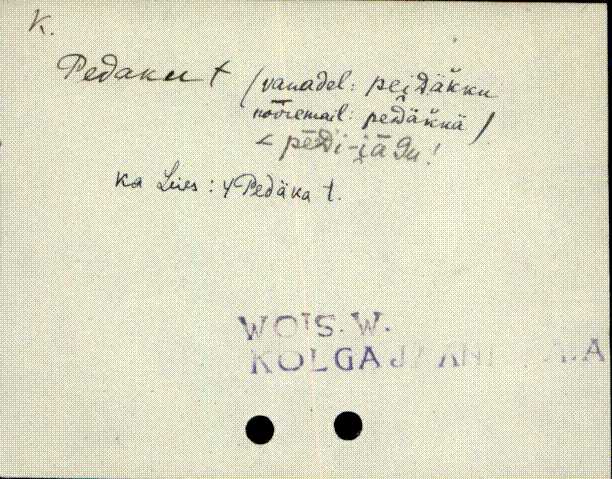 K.
Pedaku t (vanadel: peiDäkku
nooremail: peDäkkä)
< peDi-jäGu!
ka Liies: Pedäka t.
WOIS. W.
KOLGA